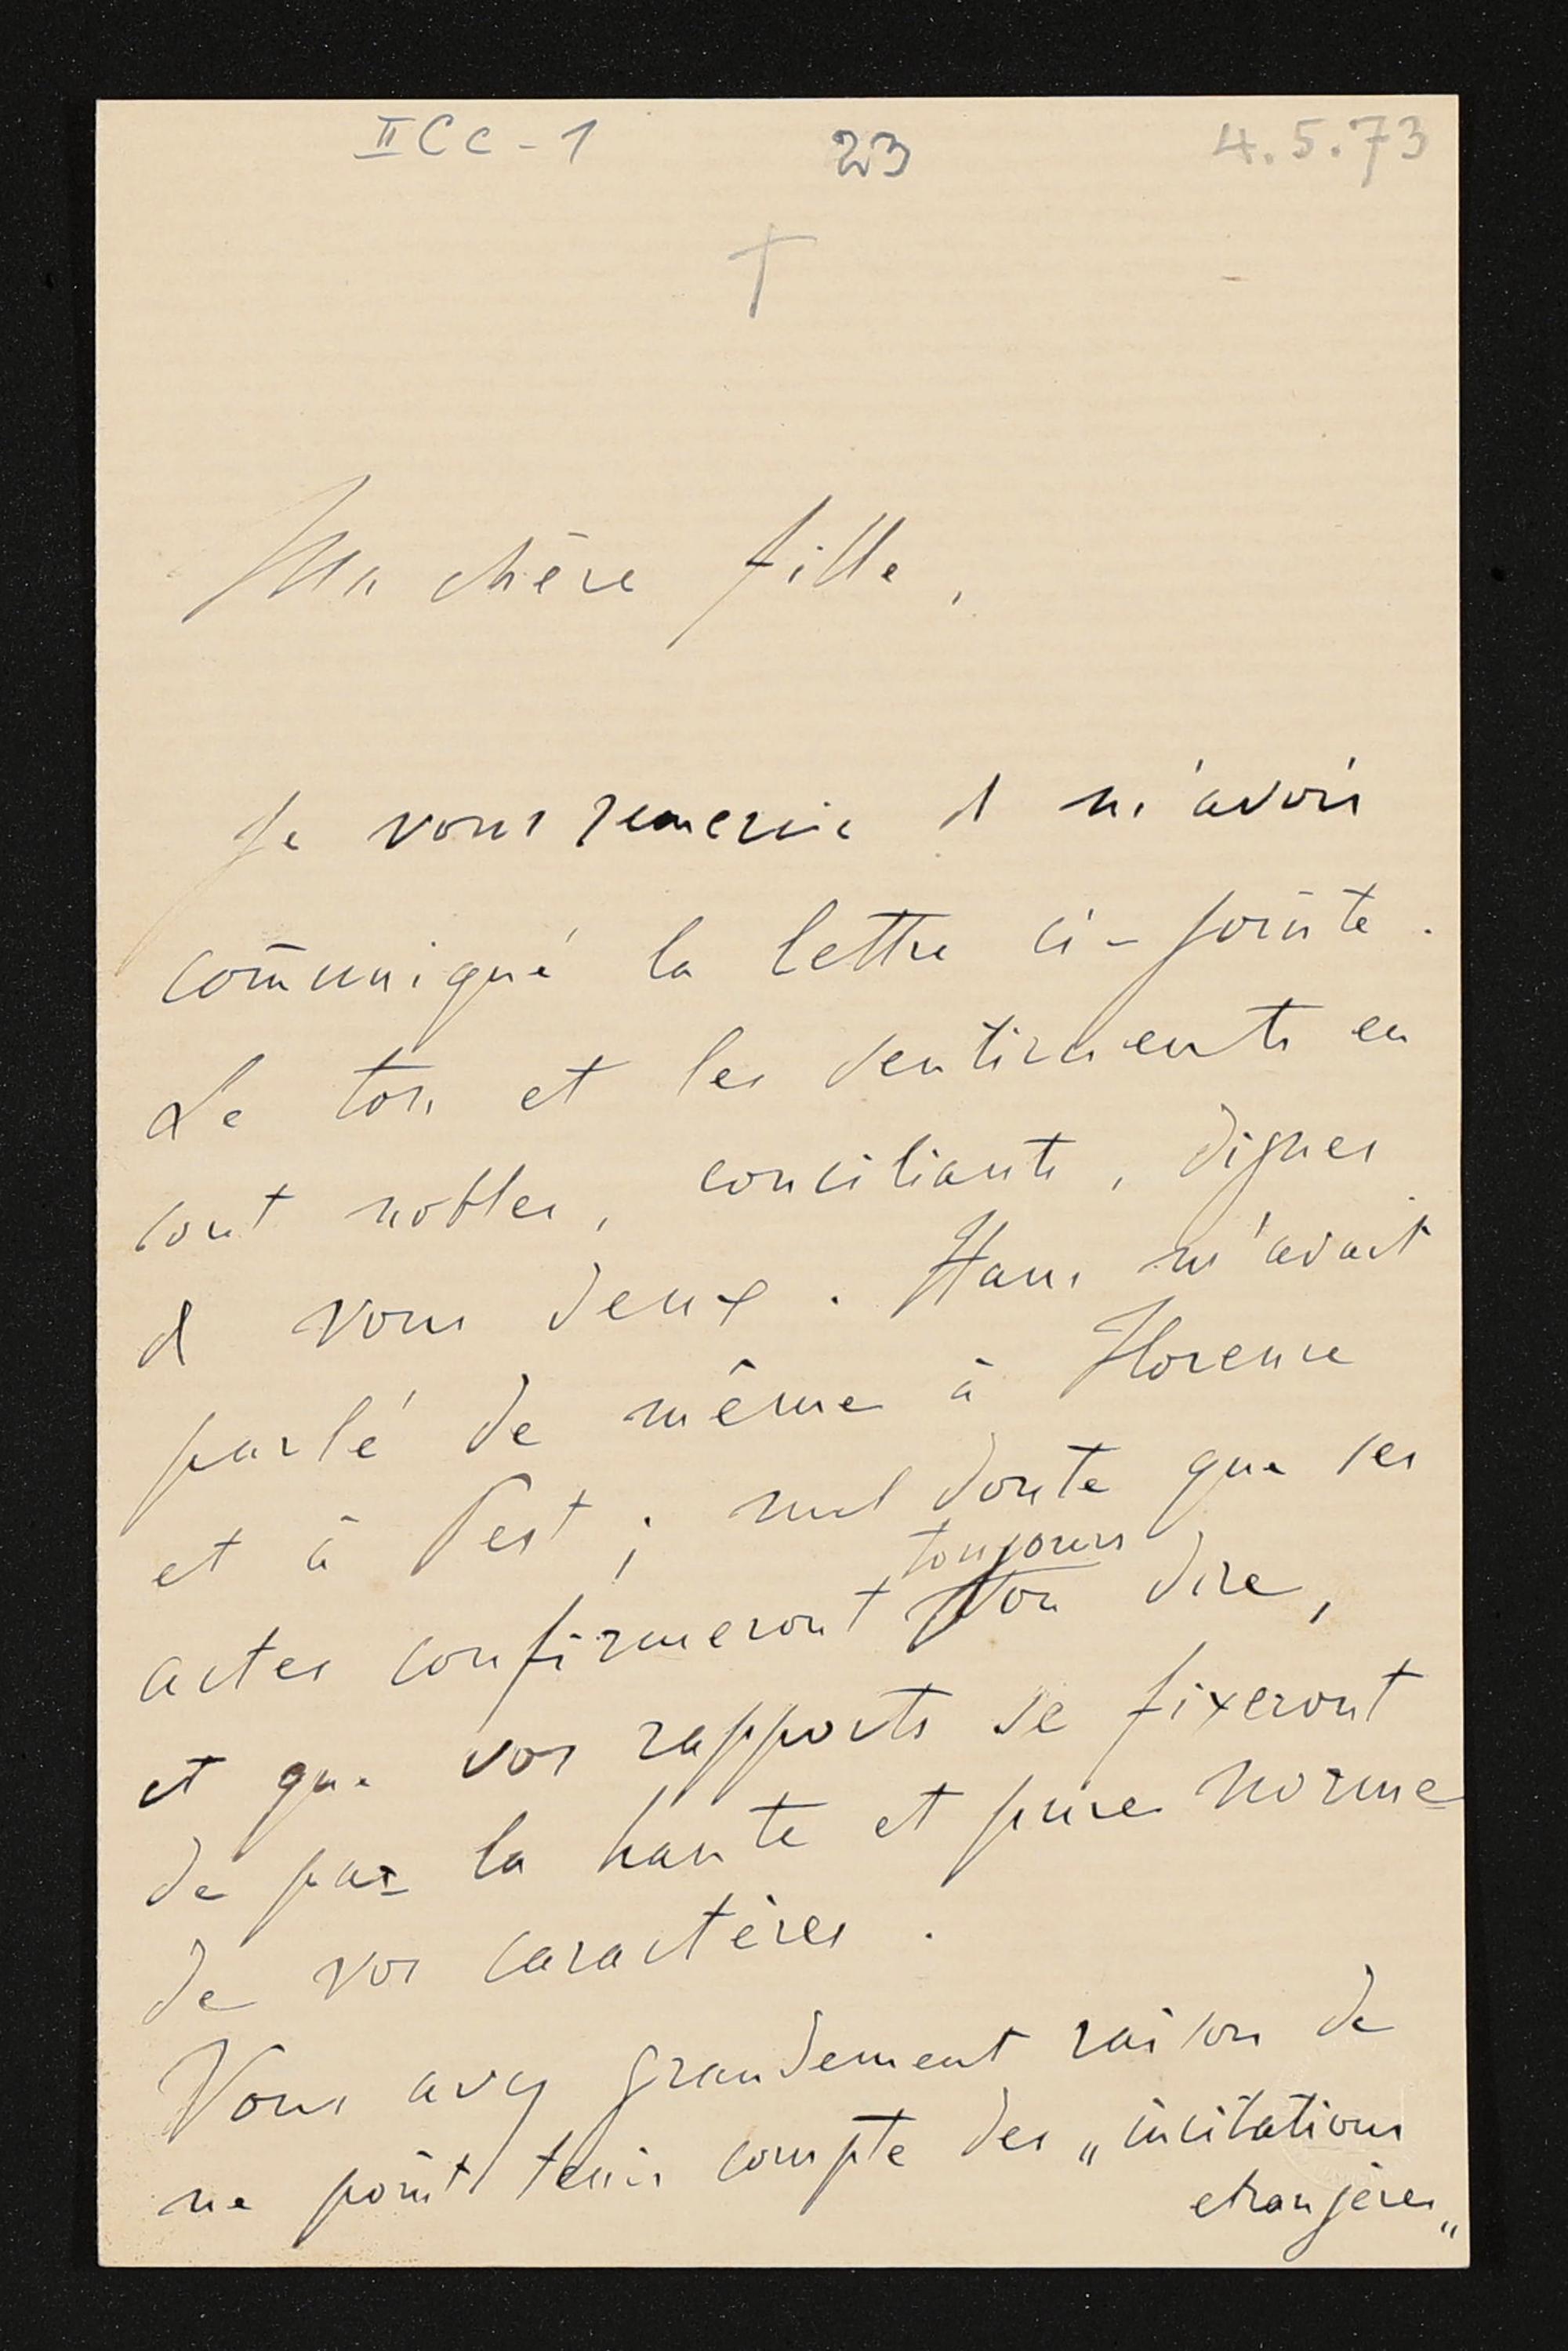 IICc-1 23 4.5.73
†
Ma chère fille,
Je vous remercie d m'avoir
com̄uniqué la lettre ci-jointe.
Le ton et les sentiments en
sont nobles, conciliants, dignes
d vous deux. Hans m'avait
parlé de même à Florence
et à Pest; nul doute que ses
toujours
actes confirmeront son dire,
et que vos rapports se fixeront
de par la haute et pure norme
de vos caractères.
Vous avez grandement raison de
ne point tenir compte des „incitations
etrangères„